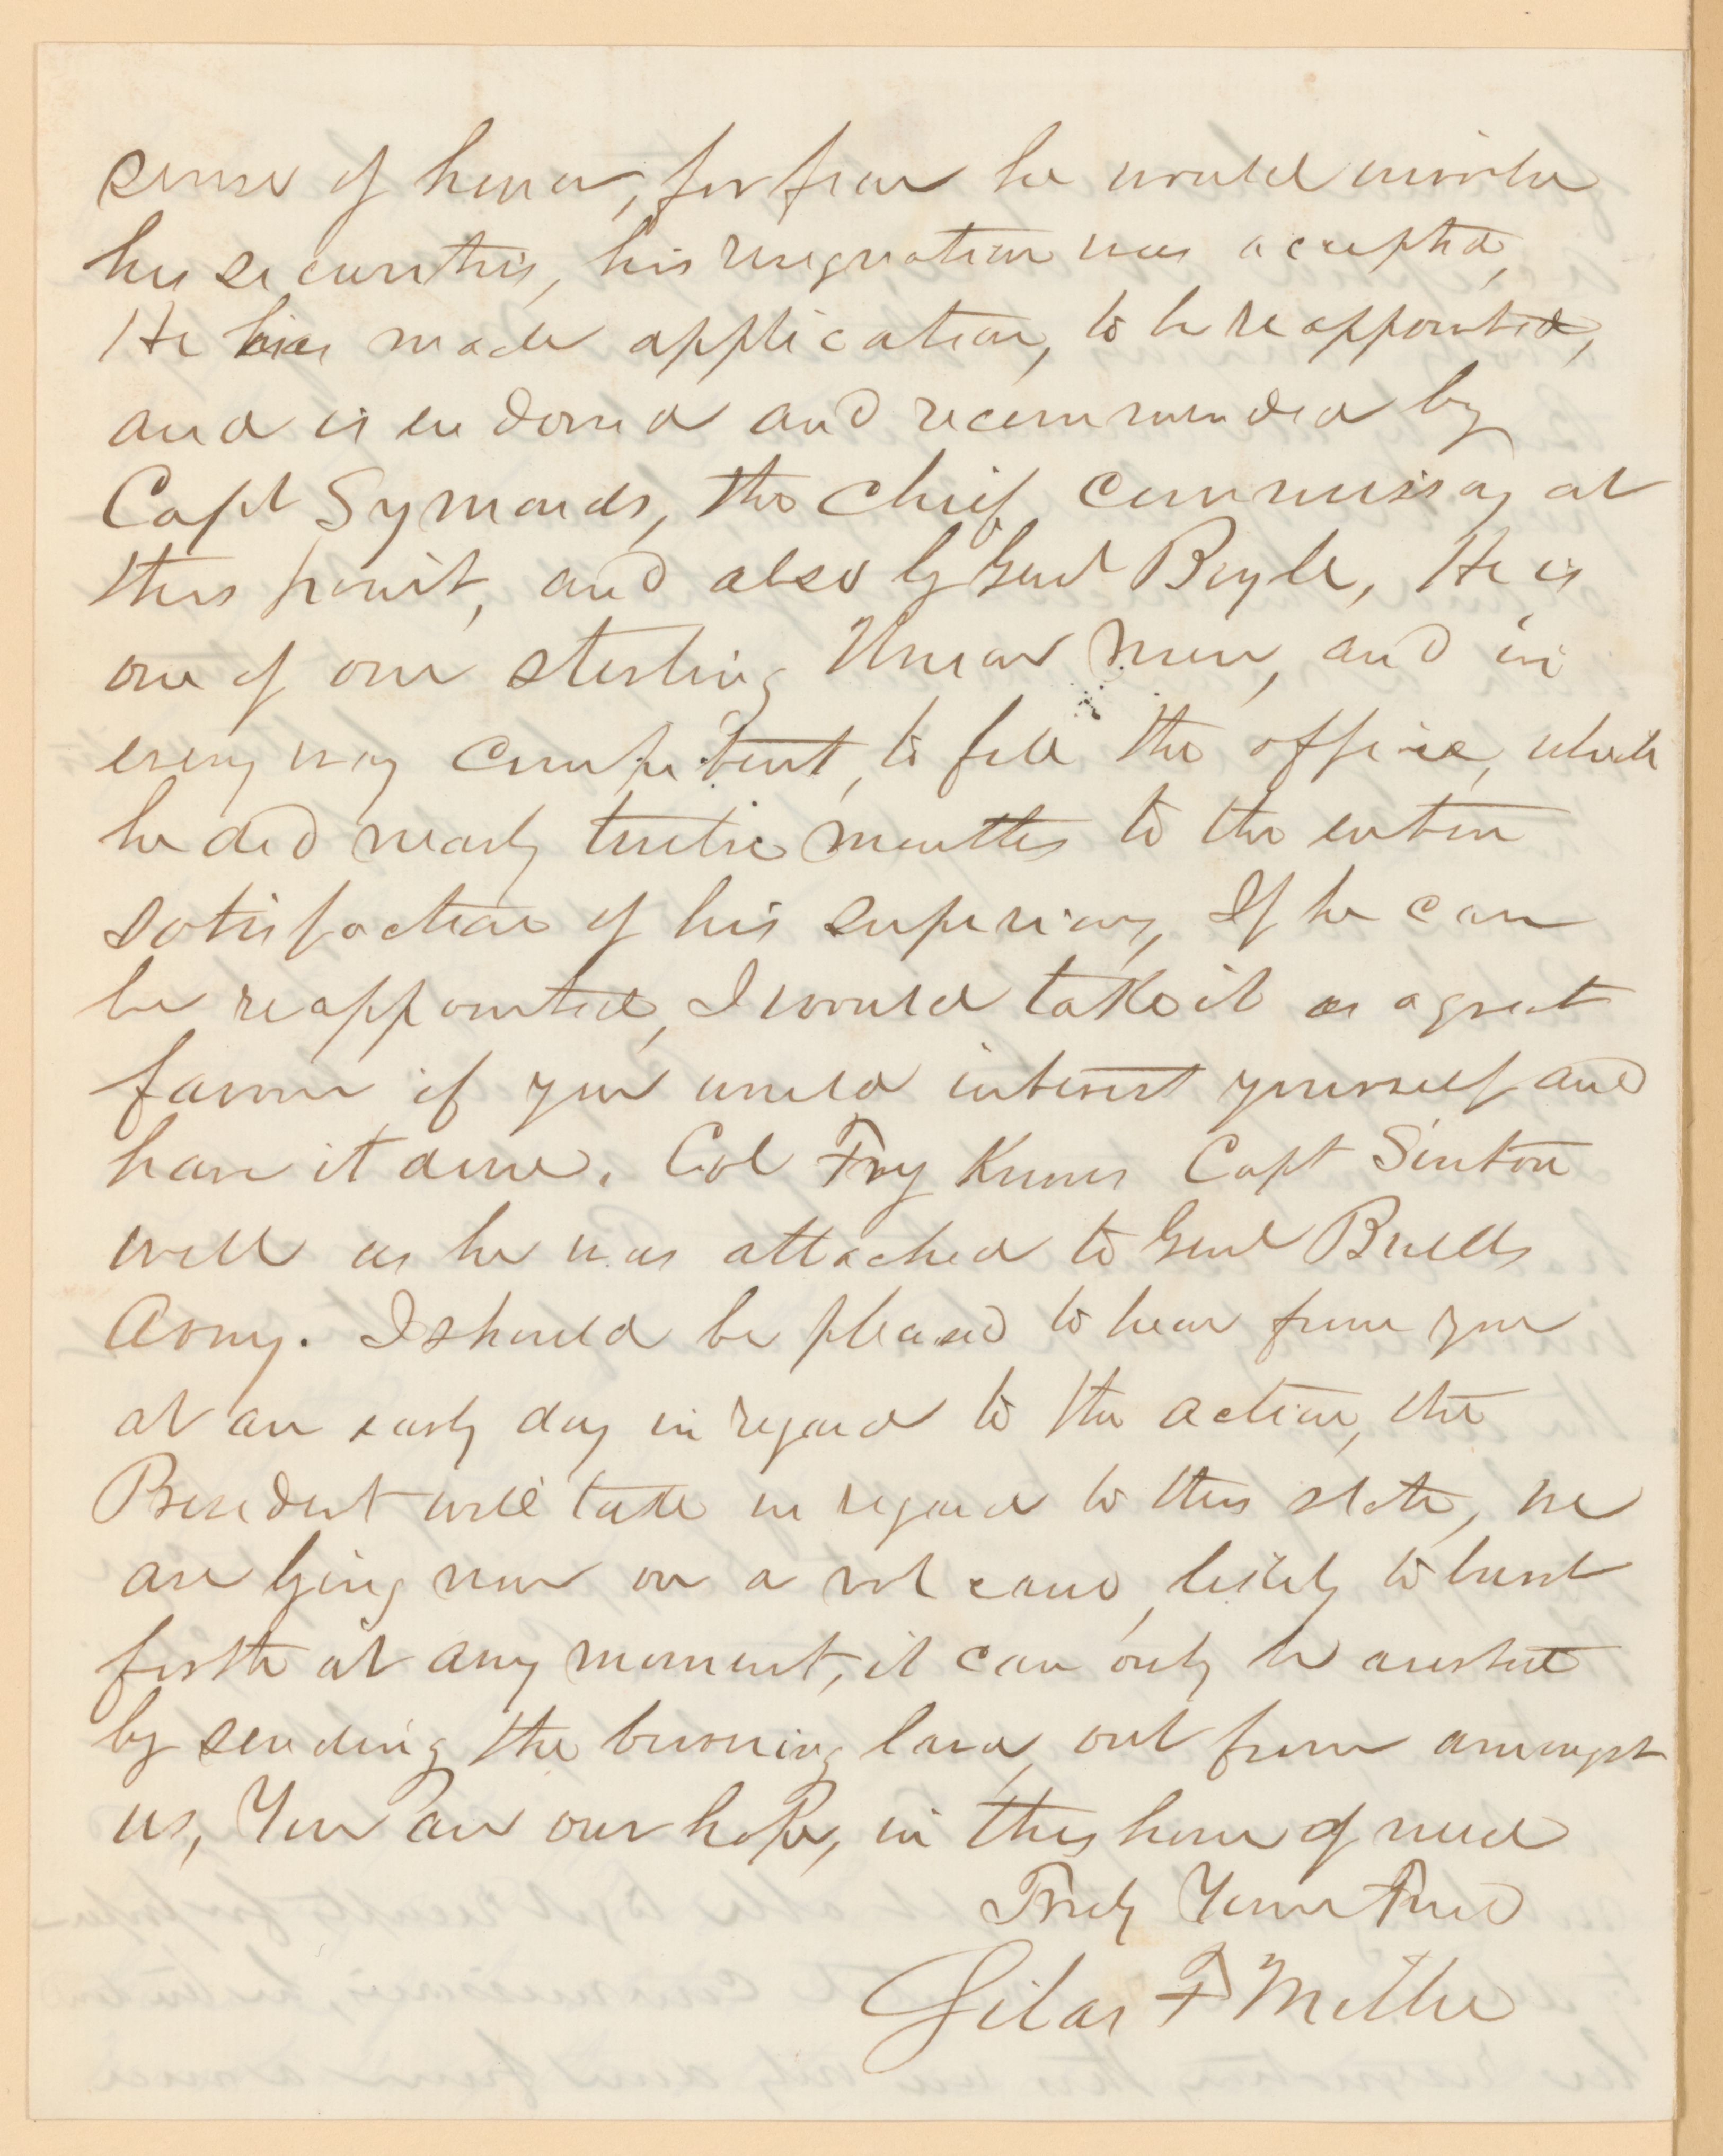 sense of honor, for fear he would involve
his securities, his resignation was accepted,
He has made application, to be reappointed,
and is endorsed and recommended by
Capt Symonds, the Chief Commissary at
this point, and also by Genl Boyle, He is
one of our sterling Union Men, and in
every way competent, to fill the office, which
he did nearly twelve months to the entire
satisfaction of his superiors, If he can
be reappointed, I would take it as a great
favour if you would interest yourself and
have it done. Col Fry Knows Capt Sinton
well as he was attached to Genl Buells
Army. I should be pleased to hear from you
at an early day in regard to the action, the
President will take in regard to this state, we
are lying now on a volcano, likely to burst
forth at any moment, it can only be arrested
by sending the burning lava, out from amongst
us, You are our hope, in this hour of need
Truly Your Friend
Silas F Miller